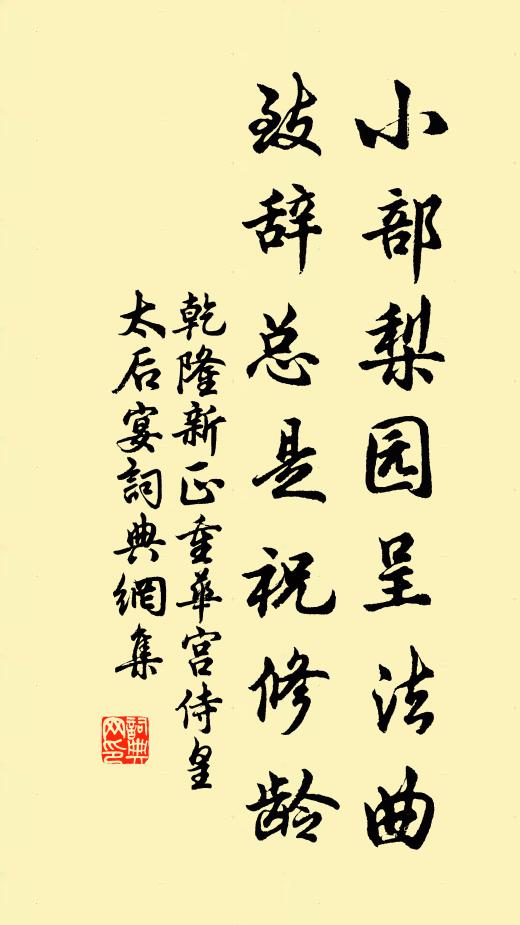 小部梨园呈法曲
致辞总是祝修龄
乾隆新正重华宫侍皇
太后宴詞典網集
詞典
网印